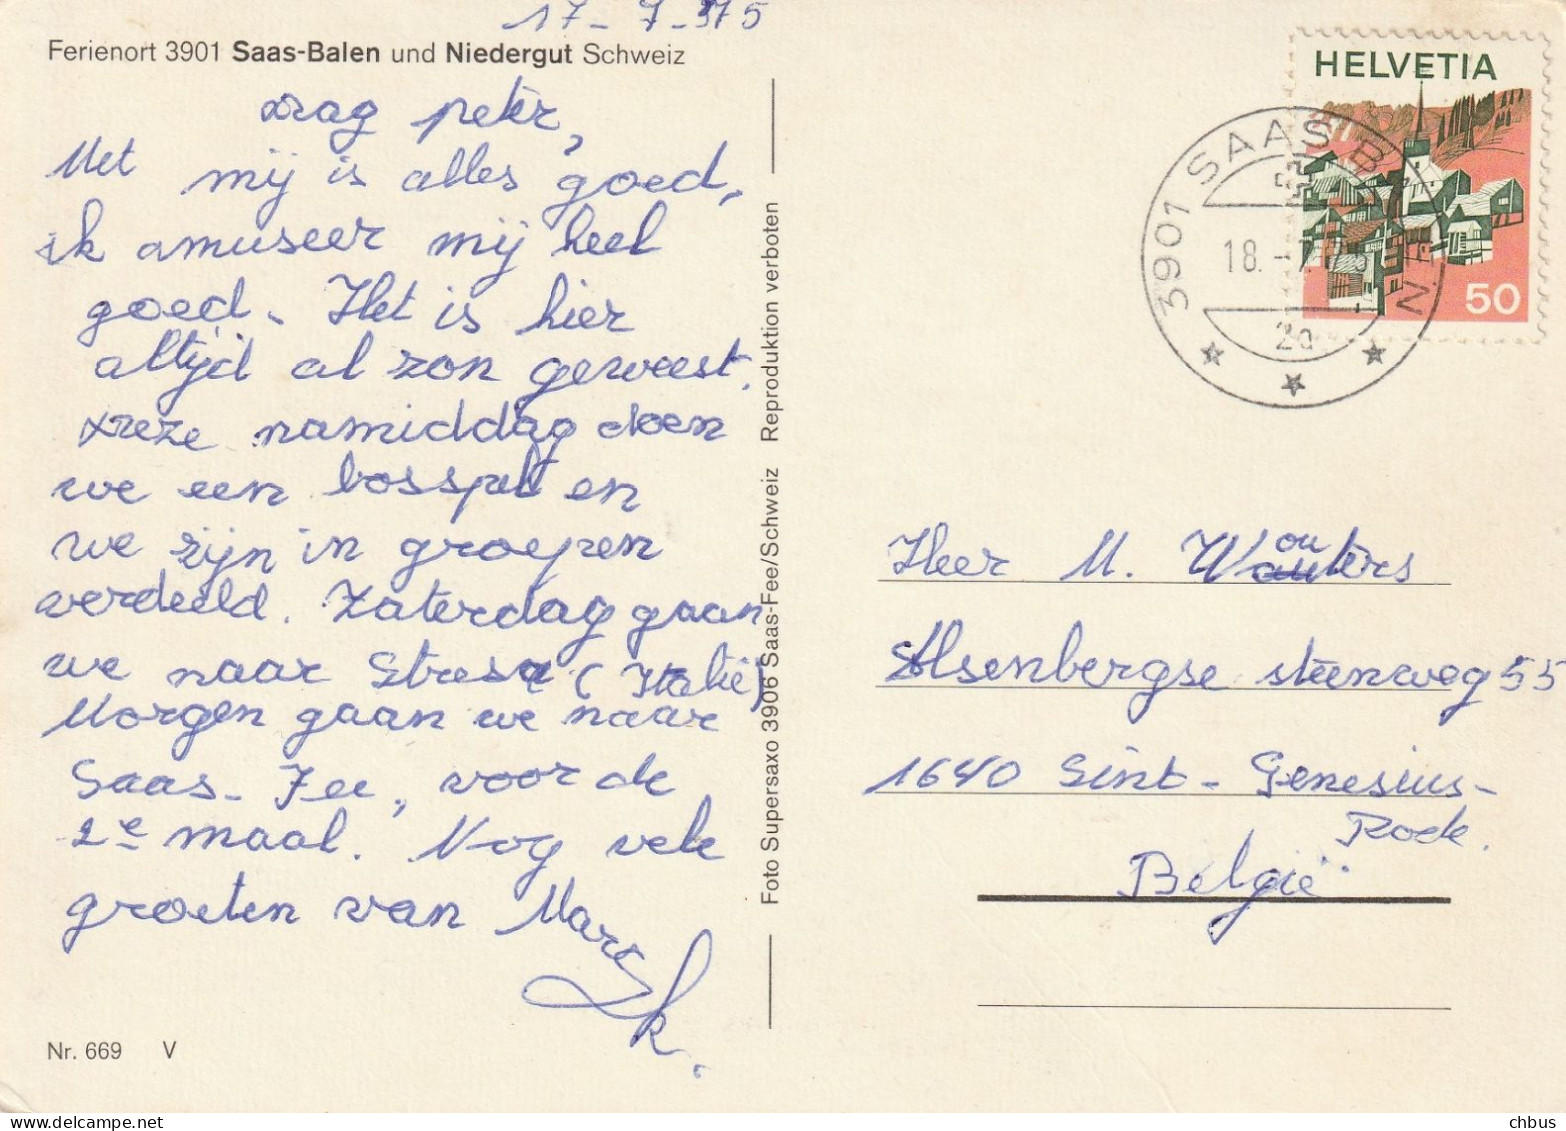 17-7-75
Ferienort 3901 Saas-Balen und Niedergut Schweiz
Dag peter,
Met mij is alles goed,
ik amuseer mij heel
goed. Het is hier
altijd al zon geweest.
Deze namiddag doen
we een bosspel en
we zijn in groepen
verdeeld. Zaterdag gaan
we naar Stresa (Italië)
Morgen gaan we naar
Saas-Fee, voor de
2e maal. Nog vele
groeten van Marc
k.
Nr. 669 V
Foto Supersaxo 3906 Saas-Fee/Schweiz Reproduktion verboten
HELVETIA
50
3901 SAAS BALEN
18.-7.75
2a
Heer M. Wouters
Alsenbergse steenweg 55
1640 Sint-Genesius-
Rode.
België
chbus